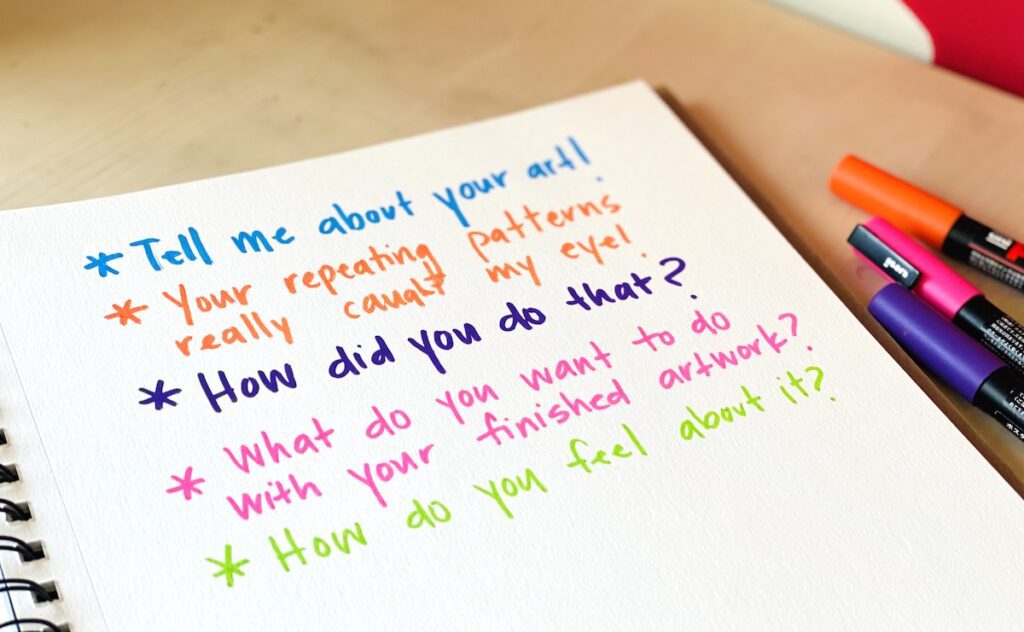 * Tell me about your art!
* Your repeating patterns
really caught my eye!
* How did you do that?
* What do you want to do
with your finished artwork?
* How do you feel about it?